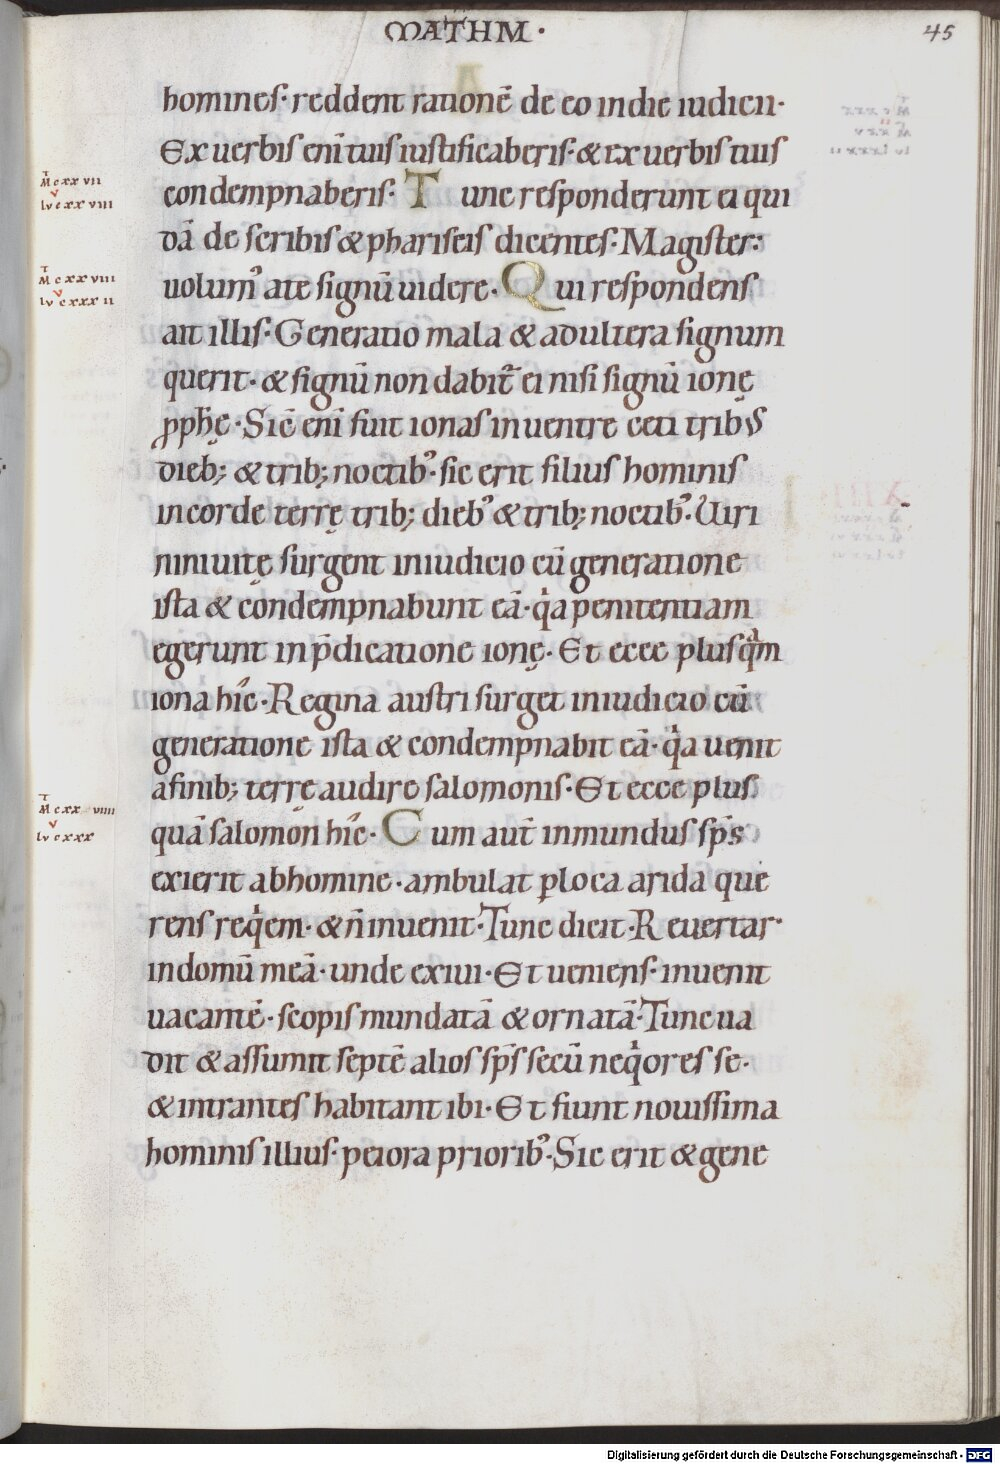 MATHM·
45
homines· reddent rationē de eo indie iudicii·
Ex uerbis eni tuis iustificaberis· & ex uerbis tuis
M cxxvii
lv cxxviii
condempnaberis· Tunc responderunt ei qui
dā de scribis & phariseis dicentes· Magister:
M cxxviii
lv cxxxii
uolum᾽ ate signū uidere· Qui respondens
ait illis· Generatio mala & adultera signum
querit· & signū non dabit̄ ei nisi signū ionę
ꝓphę· Sic̄ eni fuit ionas inuentre ceti tribus
dieb; & trib; noctib᾽· sic erit filius hominis
incorde terrę trib; dieb᾽ & trib; noctib᾽· Uiri
niniuitę surgent iniudicio cū generatione
ista & condempnabunt eā· qͥa penitentiam
egerunt in p̄dicatione ionę· Et ecce plusqͣm
iona hic· Regina austri surget iniudicio cū
generatione ista & condempnabit eā· qͥa uenit
afinib; terrę audire salomonis· Et ecce plus
M cxxviiii
lv cxxx
quā salomon hic· Cum aut̄ inmundus sp̄s
exierit abhomine· ambulat ꝑloca arida que
rens reqͥem· & n̄ inuenit· Tunc dicit· Reuertar·
indomū meā· unde exiui· Et ueniens· inuenit
uacantē· scopis mundatā & ornatā· Tunc ua
dit & assumit septē alios sp̄s secū neqͥores se·
& intrantes habitant ibi· Et fiunt nouissima
hominis illius· peiora priorib᾽· Sic erit & gene
Digitalisierung gefördert durch die Deutsche Forschungsgemeinschaft - DFG